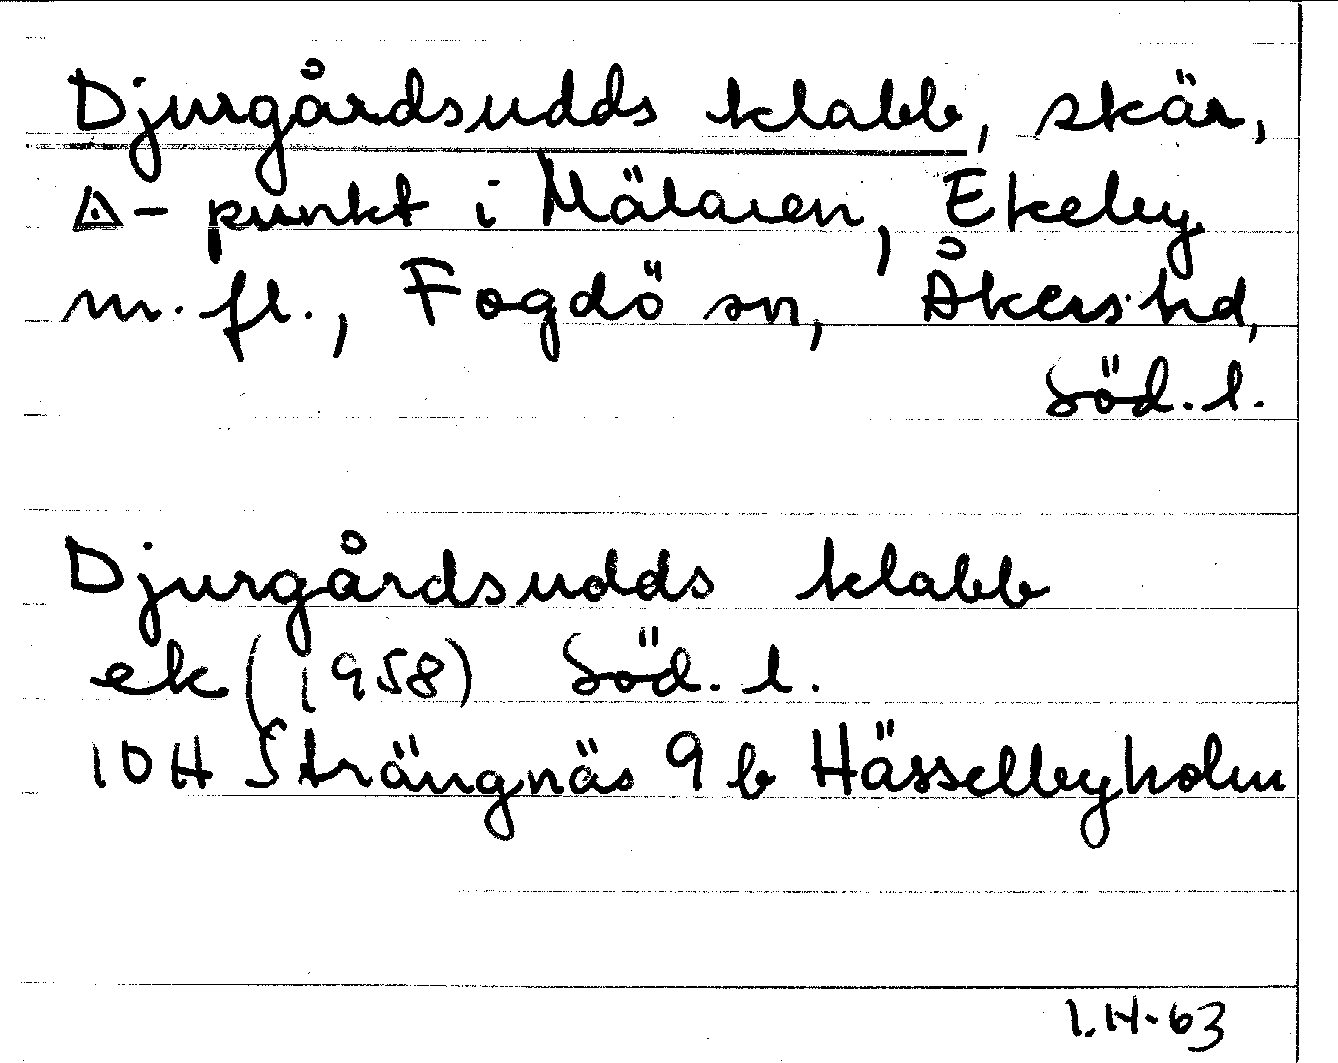 Djurgårdsudds klabb, skär,
⚠-punkt i Mälaren, Ekeby
m. fl., Fogdö sn, Åkers hd,
Söd. l.
Djurgårdsudds klabb
ek (1958) Söd. l.
10H Strängnäs 9 b Hässelbyholm
I. H-63